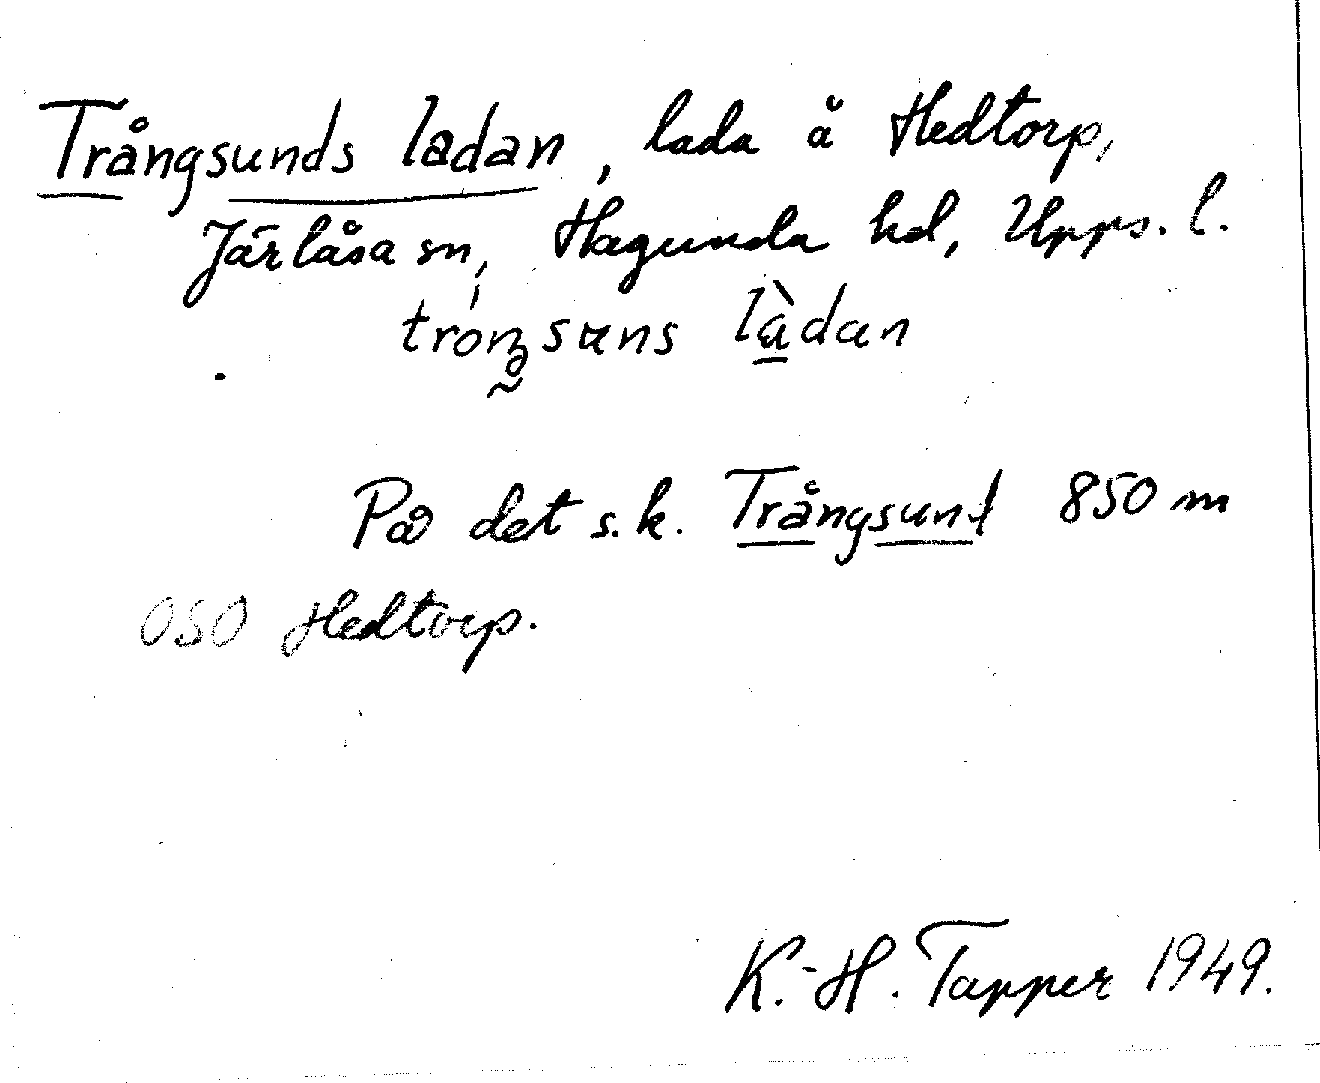 Trångsunds ladan, lada å Hedtorp,
Järlåsa sn, Hagunda hd, Upps. l.
tròŋsuns làdan
På det s.k. Trångsund 850 m
OSO Hedtorp.
K.-H. Tapper 1949.